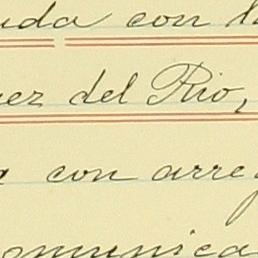 uda con l
uez del Rio,
a con arreg
omunica